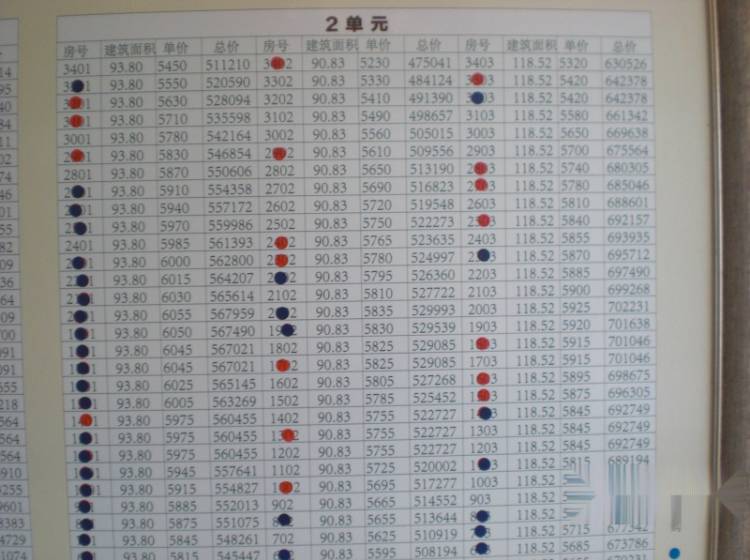 2单元
房号 建筑面积 单价 总价 房号 建筑面积 单价 总价 房号 建筑面积 单价 总价
3401 93.80 5450 511210 90.83 5230 475041 3403 118.52 5320 630526
93.80 5550 520590 3302 90.83 5330 484124 118.52 5420 642378
93.80 5630 528094 3202 90.83 5410 491390 118.52 5420 642378
93.80 5710 535598 3102 90.83 5490 498657 3103 118.52 5580 661342
3001 93.80 5780 542164 3002 90.83 5560 505015 3003 118.52 5650 669638
93.80 5830 546854 90.83 5610 509556 2903 118.52 5700 675564
2801 93.80 5870 550606 2802 90.83 5650 513190 118.52 5740 680305
93.80 5910 554358 2702 90.83 5690 516823 118.52 5780 685046
93.80 5940 557172 2602 90.83 5720 519548 2603 118.52 5810 688601
93.80 5970 559986 2502 90.83 5750 522273 118.52 5840 692157
2401 93.80 5985 561393 90.83 5765 523635 2403 118.52 5855 693935
93.80 6000 562800 90.83 5780 524997 118.52 5870 695712
93.80 6015 564207 90.83 5795 526360 2203 118.52 5885 697490
93.80 6030 565614 2102 90.83 5810 527722 2103 118.52 5900 699268
93.80 6055 567959 90.83 5835 529993 2003 118.52 5925 702231
93.80 6050 567490 90.83 5830 529539 1903 118.52 5920 701638
93.80 6045 567021 1802 90.83 5825 529085 118.52 5915 701046
93.80 6045 567021 90.83 5825 529085 1703 118.52 5915 701046
93.80 6025 565145 1602 90.83 5805 527268 118.52 5895 698675
93.80 6005 563269 1502 90.83 5785 525452 118.52 5875 696305
93.80 5975 560455 1402 90.83 5755 522727 118.52 5845 692749
93.80 5975 560455 90.83 5755 522727 1303 118.52 5845 692749
93.80 5975 560455 1202 90.83 5755 522727 1203 118.52 5845 692749
93.80 5945 557641 1102 90.83 5725 520002 118.52 5815 689194
93.80 5915 554827 90.83 5695 517277 1003 118.52
93.80 5885 552013 902 90.83 5665 514552 903 118.52
93.80 5875 551075 90.83 5655 513644 118.52
93.80 5845 548261 702 90.83 5625 510919 118.52 5715 677342
93.80 5815 545447 90.83 5595 508194 118.52 5685 673786